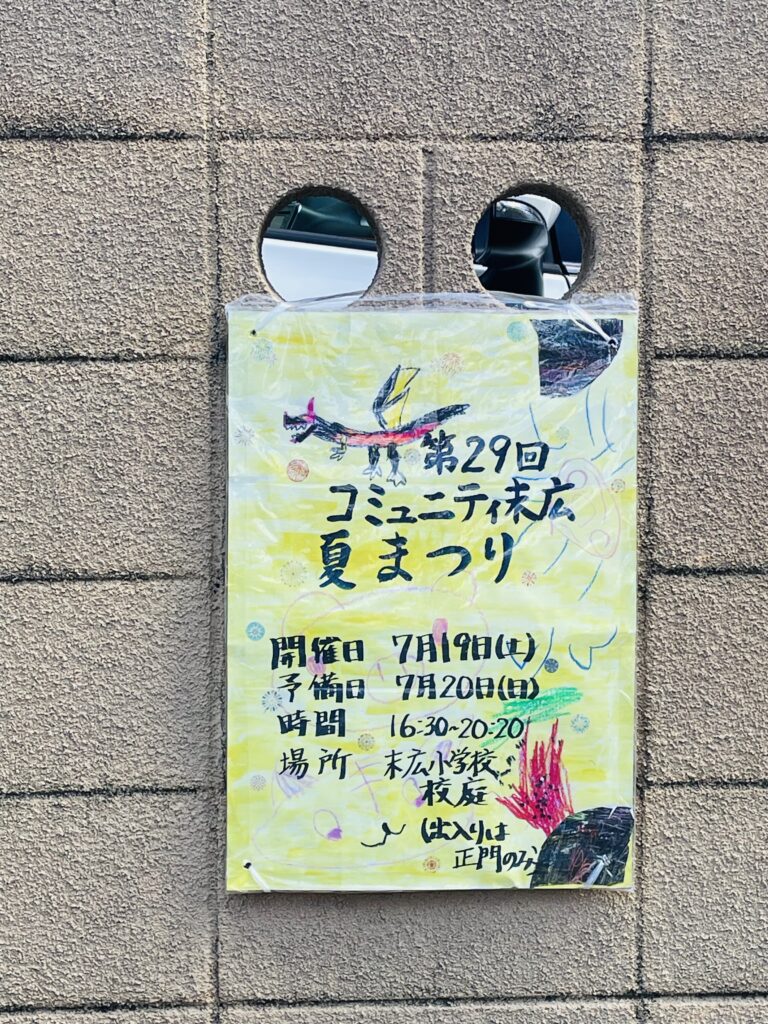 第29回
コミュニティ末広
夏まつり
開催日 7月19日(土)
予備日 7月20日(日)
時間 16:30~20:20
場所 末広小学校
校庭
(出入りは
正門のみ